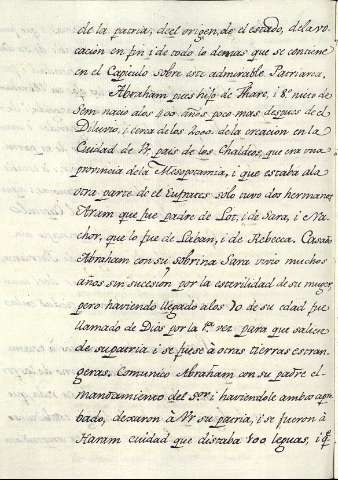 de la patria, del origen, de el estado, de la vo
cacion en fin i de todo lo demas que se contiene
en el Capitulo sobre este admirable Patriarca.
Abraham pues hijo de Thare, i 8º. nieto de
Sem nacio a los 300 años poco mas despues de el
Diluvio, i cerca de los 2000. de la creacion en la
Cuidad de Vr, pais de los Chaldeos, que era una
provincia de la Mesopotamia, i que estaba a la
otra parte de el Eufrates solo tuvo dos hermanos
Aram que fue padre de Lot, i de Sara, i Na
chor, que lo fue de Laban, i de Rebecca. Casado
Abraham con su sobrina Sara vivio muchos
años sin sucesion por la esterilidad de su muger,
pero haviendo llegado a los 70 de su edad fue
llamado de Dios por la 1ª. vez para que saliese
de su patria i se fuese à otras tierras estran
geras. Comunico Abraham con su padre el
mandamiento del Sor. i haviendole ambos apro
bado, dexaron à Vr su patria, i se fueron à
Haram cuidad que distaba 100 leguas, i q.e